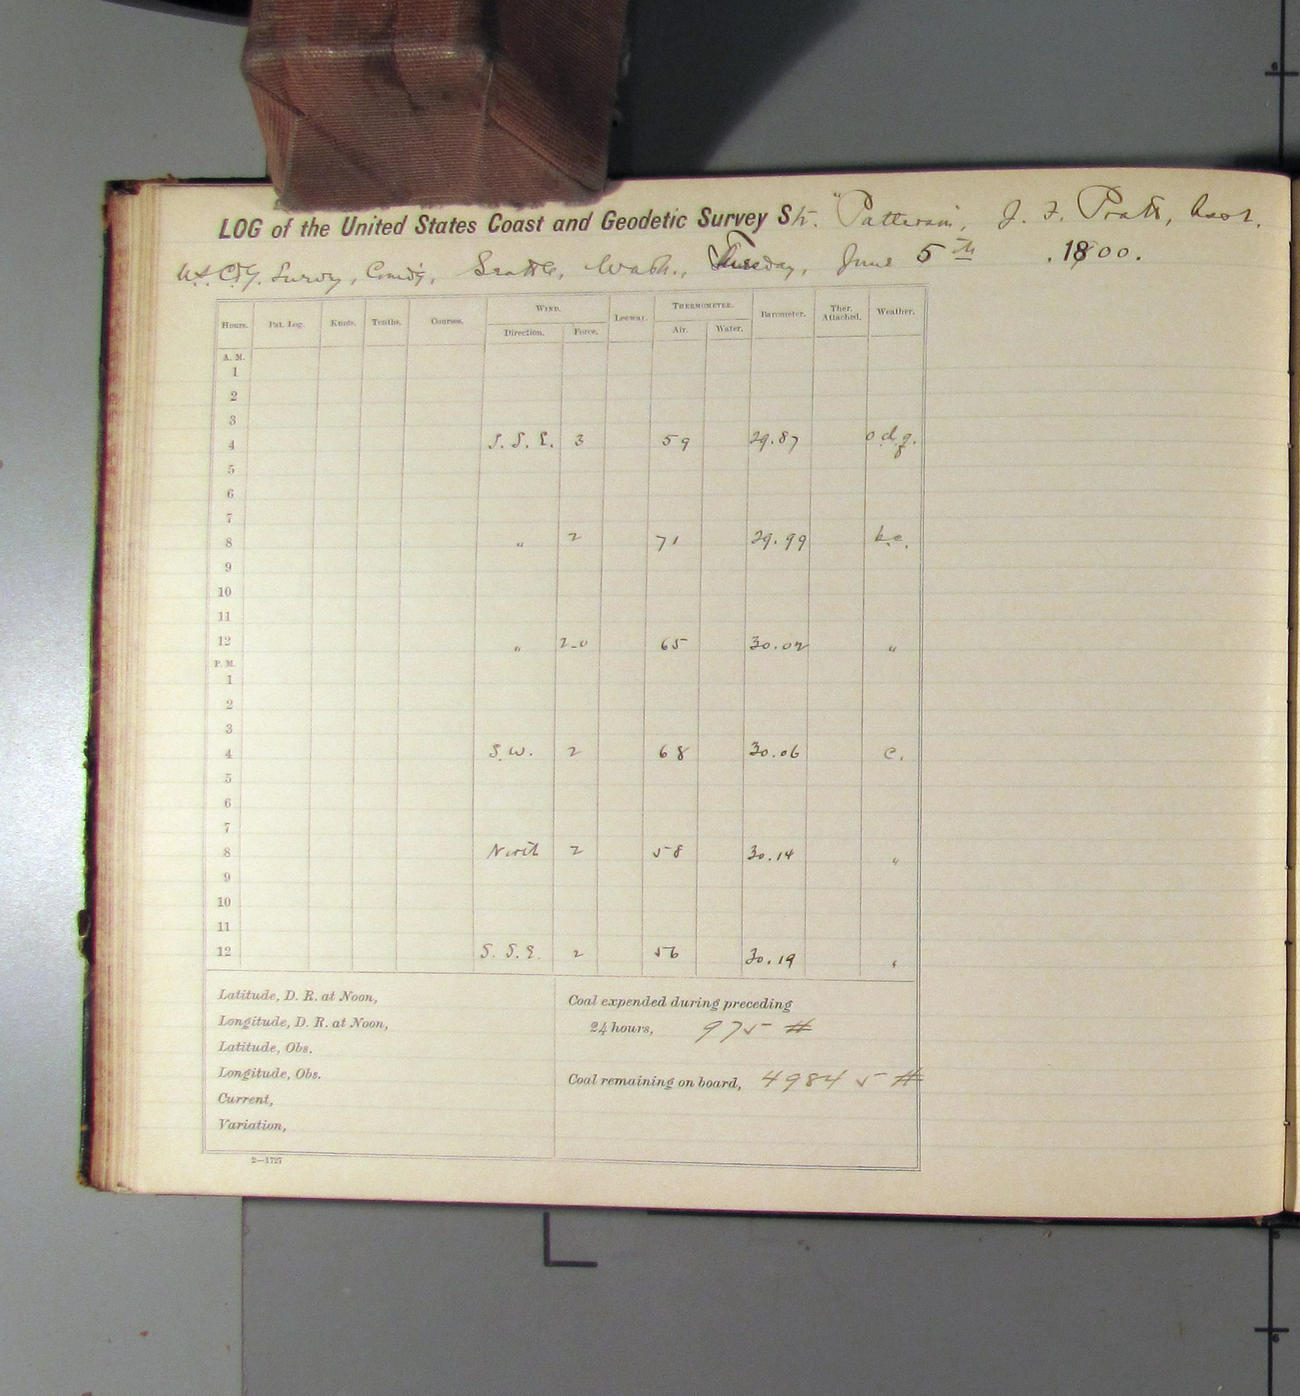 LOG of the United States Coast and Geodetic Survey Str. "Patterson", J. F. Pratt, Asst.
U.S.C.&G. Survey, Comd'g, Seattle, Wash., Tuesday, June 5th, 1900.
Hours. Pat. Log. Knots. Tenths. Courses. WIND. Direction. Force. Leeway. THERMOMETER. Air. Water. Barometer. Ther. Attached. Weather.
A. M.
1
2
3
4 S. S. E. 3 59 29.87 o.d.q.
5
6
7
8 " 2 71 29.99 b.c.
9
10
11
12 " 2-0 65 30.02 "
P. M.
1
2
3
4 S. W. 2 68 30.06 c.
5
6
7
8 North 2 58 30.14 "
9
10
11
12 S. S. E. 2 56 30.19 "
Latitude, D. R. at Noon,
Longitude, D. R. at Noon,
Latitude, Obs.
Longitude, Obs.
Current,
Variation,
Coal expended during preceding
24 hours, 975 #
Coal remaining on board, 49845 #
2—1727